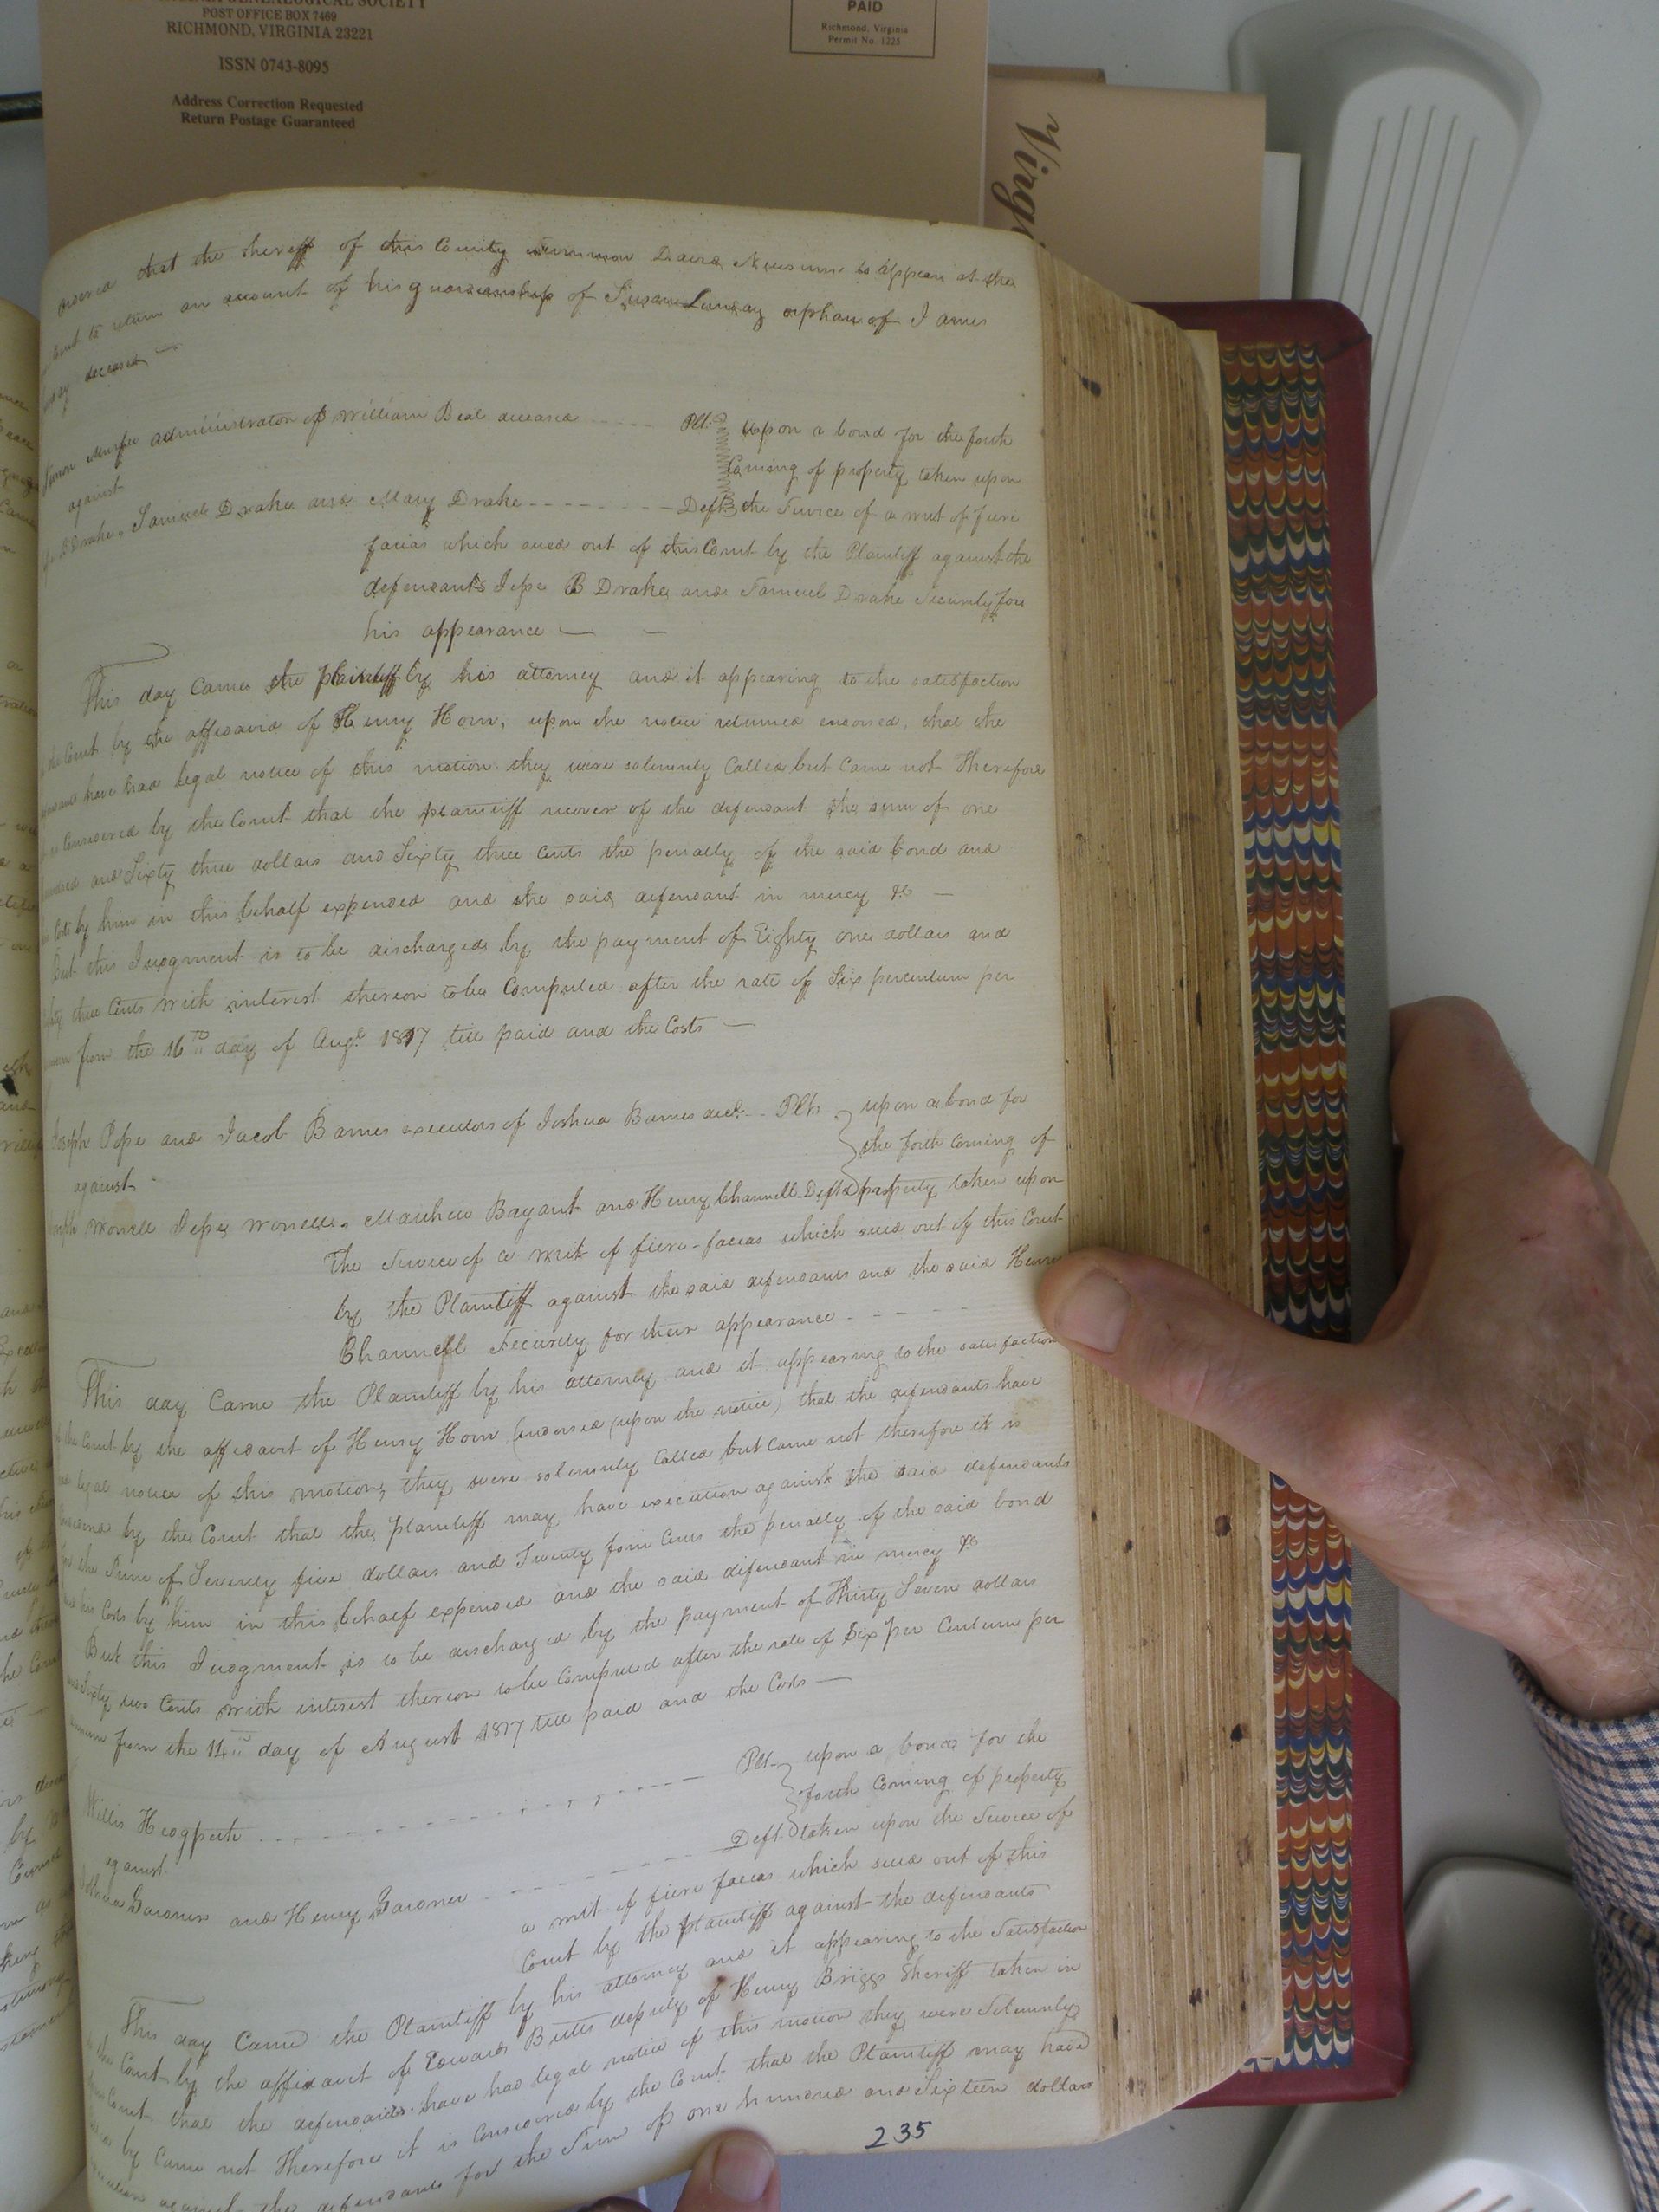 GENEALOGICAL SOCIETY
POST OFFICE BOX 7469
RICHMOND, VIRGINIA 23221
ISSN 0743-8095
Address Correction Requested
Return Postage Guaranteed
PAID
Richmond, Virginia
Permit No. 1225
Virg
ordered that the Sheriff of this County summon David Newsum to appear at the
to return an account of his guardianship of Susan Lunday orphan of James
deceased
administrator of William Beal deceased Plt. upon a bond for the forth
against Coming of property taken upon
Drake, Samuel Drake and Mary Drake Defts the Service of a writ of fiere
facias which sued out of this Court by the Plaintiff against the
defendants Jesse B Drake and Samuel Drake Security for
his appearance
This day Came the plaintiff by his attorney and it appearing to the satisfaction
the Court by the affidavid of Henry Horn, upon the notice returned endorsed, that the
have had legal notice of this motion they were solemnly Called but Came not Therefore
Considered by the Court that the plaintiff recover of the defendant the sum of one
hundred and Sixty three dollars and Sixty three Cents the penalty of the said bond and
Costs by him in this behalf expended and the said defendant in mercy &c
But this Judgment is to be discharged by the payment of Eighty one dollars and
three Cents with interest thereon to be Computed after the rate of Six percentum per
from the 16th day of Augt. 1817 till paid and the Costs
Joseph Pope and Jacob Barnes executors of Joshua Barnes decd. Plts upon a bond for
against the forth Coming of
Worrell Jesse Worrell, Mathew Bryant and Henry Channell Defts property taken upon
The Service of a writ of fiere-facias which sued out of this Court
by the Plaintiff against the said defendants and the said Henry
Channell Security for their appearance
This day Came the Plaintiff by his attorney and it appearing to the satisfaction
the Court by the affidavit of Henry Horn (endorsed upon the notice) that the defendants have
legal notice of this motion, they were solemnly Called but Came not therefore it is
by the Court that the plaintiff may have execution against the said defendants
the Sum of Seventy five dollars and Twenty four Cents the penalty of the said bond
Costs by him in this behalf expended and the said defendant in mercy &c
But this Judgment is to be discharged by the payment of Thirty Seven dollars
and Sixty two Cents with interest thereon to be Computed after the rate of Six per Centum per
annum from the 14th day of August 1817 till paid and the Costs
Willis Plt. upon a bond for the
against forth Coming of property
Gardner and Henry Gardner Deft taken upon the Service of
a writ of fiere facias which sued out of this
Court by the plaintiff against the defendants
This day Came the Plaintiff by his attorney and it appearing to the Satisfaction
the Court by the affidavit of Edward Butts deputy of Henry Briggs Sheriff taken in
Court that the defendants have had legal notice of this motion they were Solemnly
by Came not Therefore it is Considered by the Court that the Plaintiff may have
against the defendants for the Sum of one hundred and Sixteen dollars
235